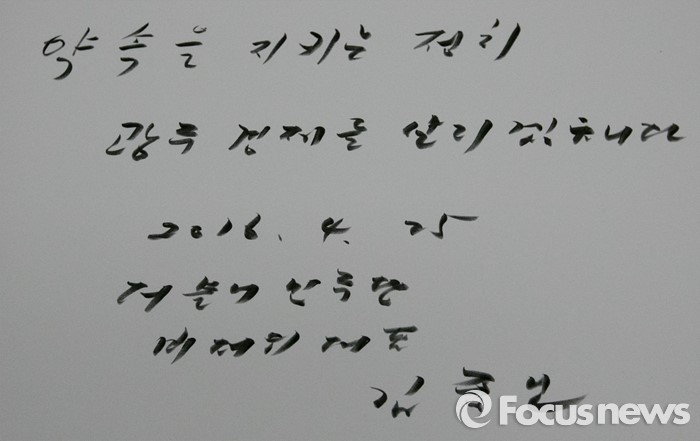 약속을 지키는 정치
광주 경제를 살리겠습니다
2016. 4. 25
더불어민주당
비대위 대표
김종인
© Focusnews